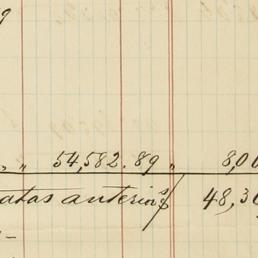 9
" " 54,582.89 " 8,00
atas anterior$ 48,36